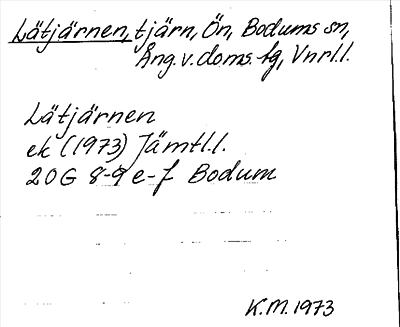 Lätjärnen, tjärn, Ön, Bodums sn,
Ång. v. doms. fg, Vnrl.l.
Lätjärnen
ek (1973) Jämtl.l.
20G 8-9 e-f Bodum
K.M. 1973